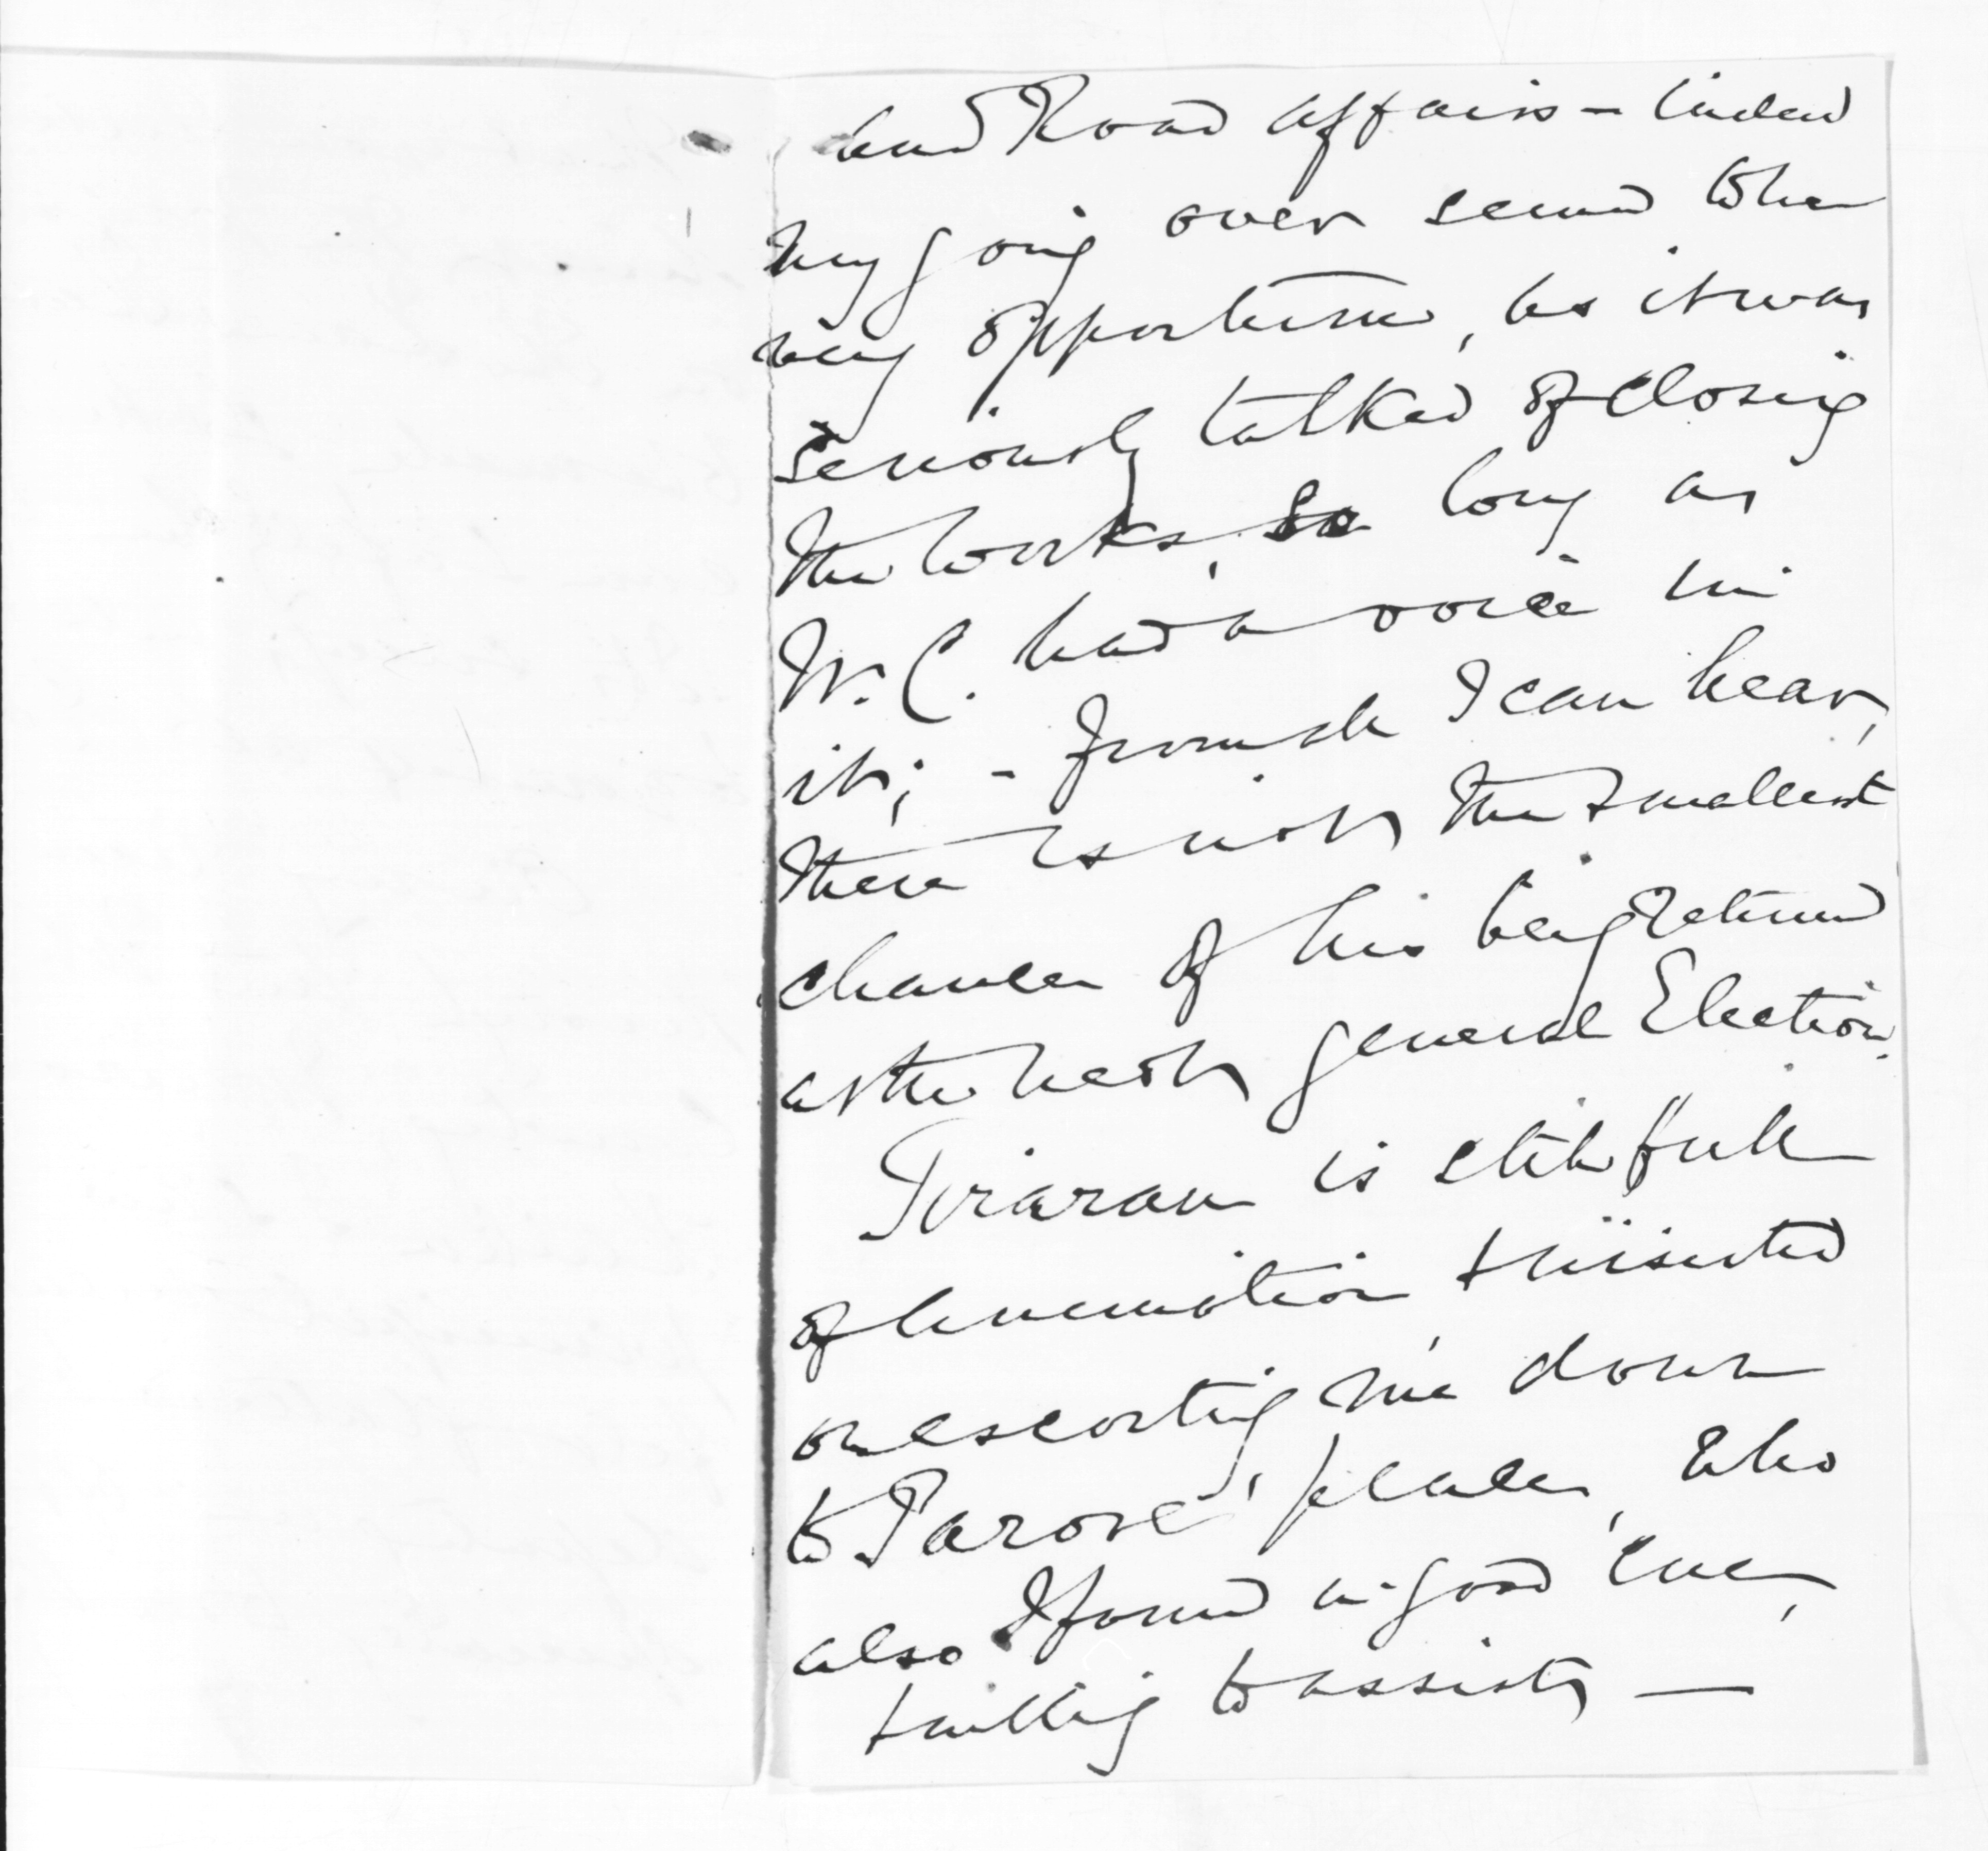 and Road affairs – indeed
my going over seemed to be
very opportune, as it was
seriously talked of closing
the works, so long as
W. C. had a voice in
it; – from all I can hear,
there is not the smallest
chance of his being returned
at the next general Election.
Tirarau is still full
of animation & insisted
on escorting me down
to Parore's place, who
also I found in good cue,
& willing to assist —